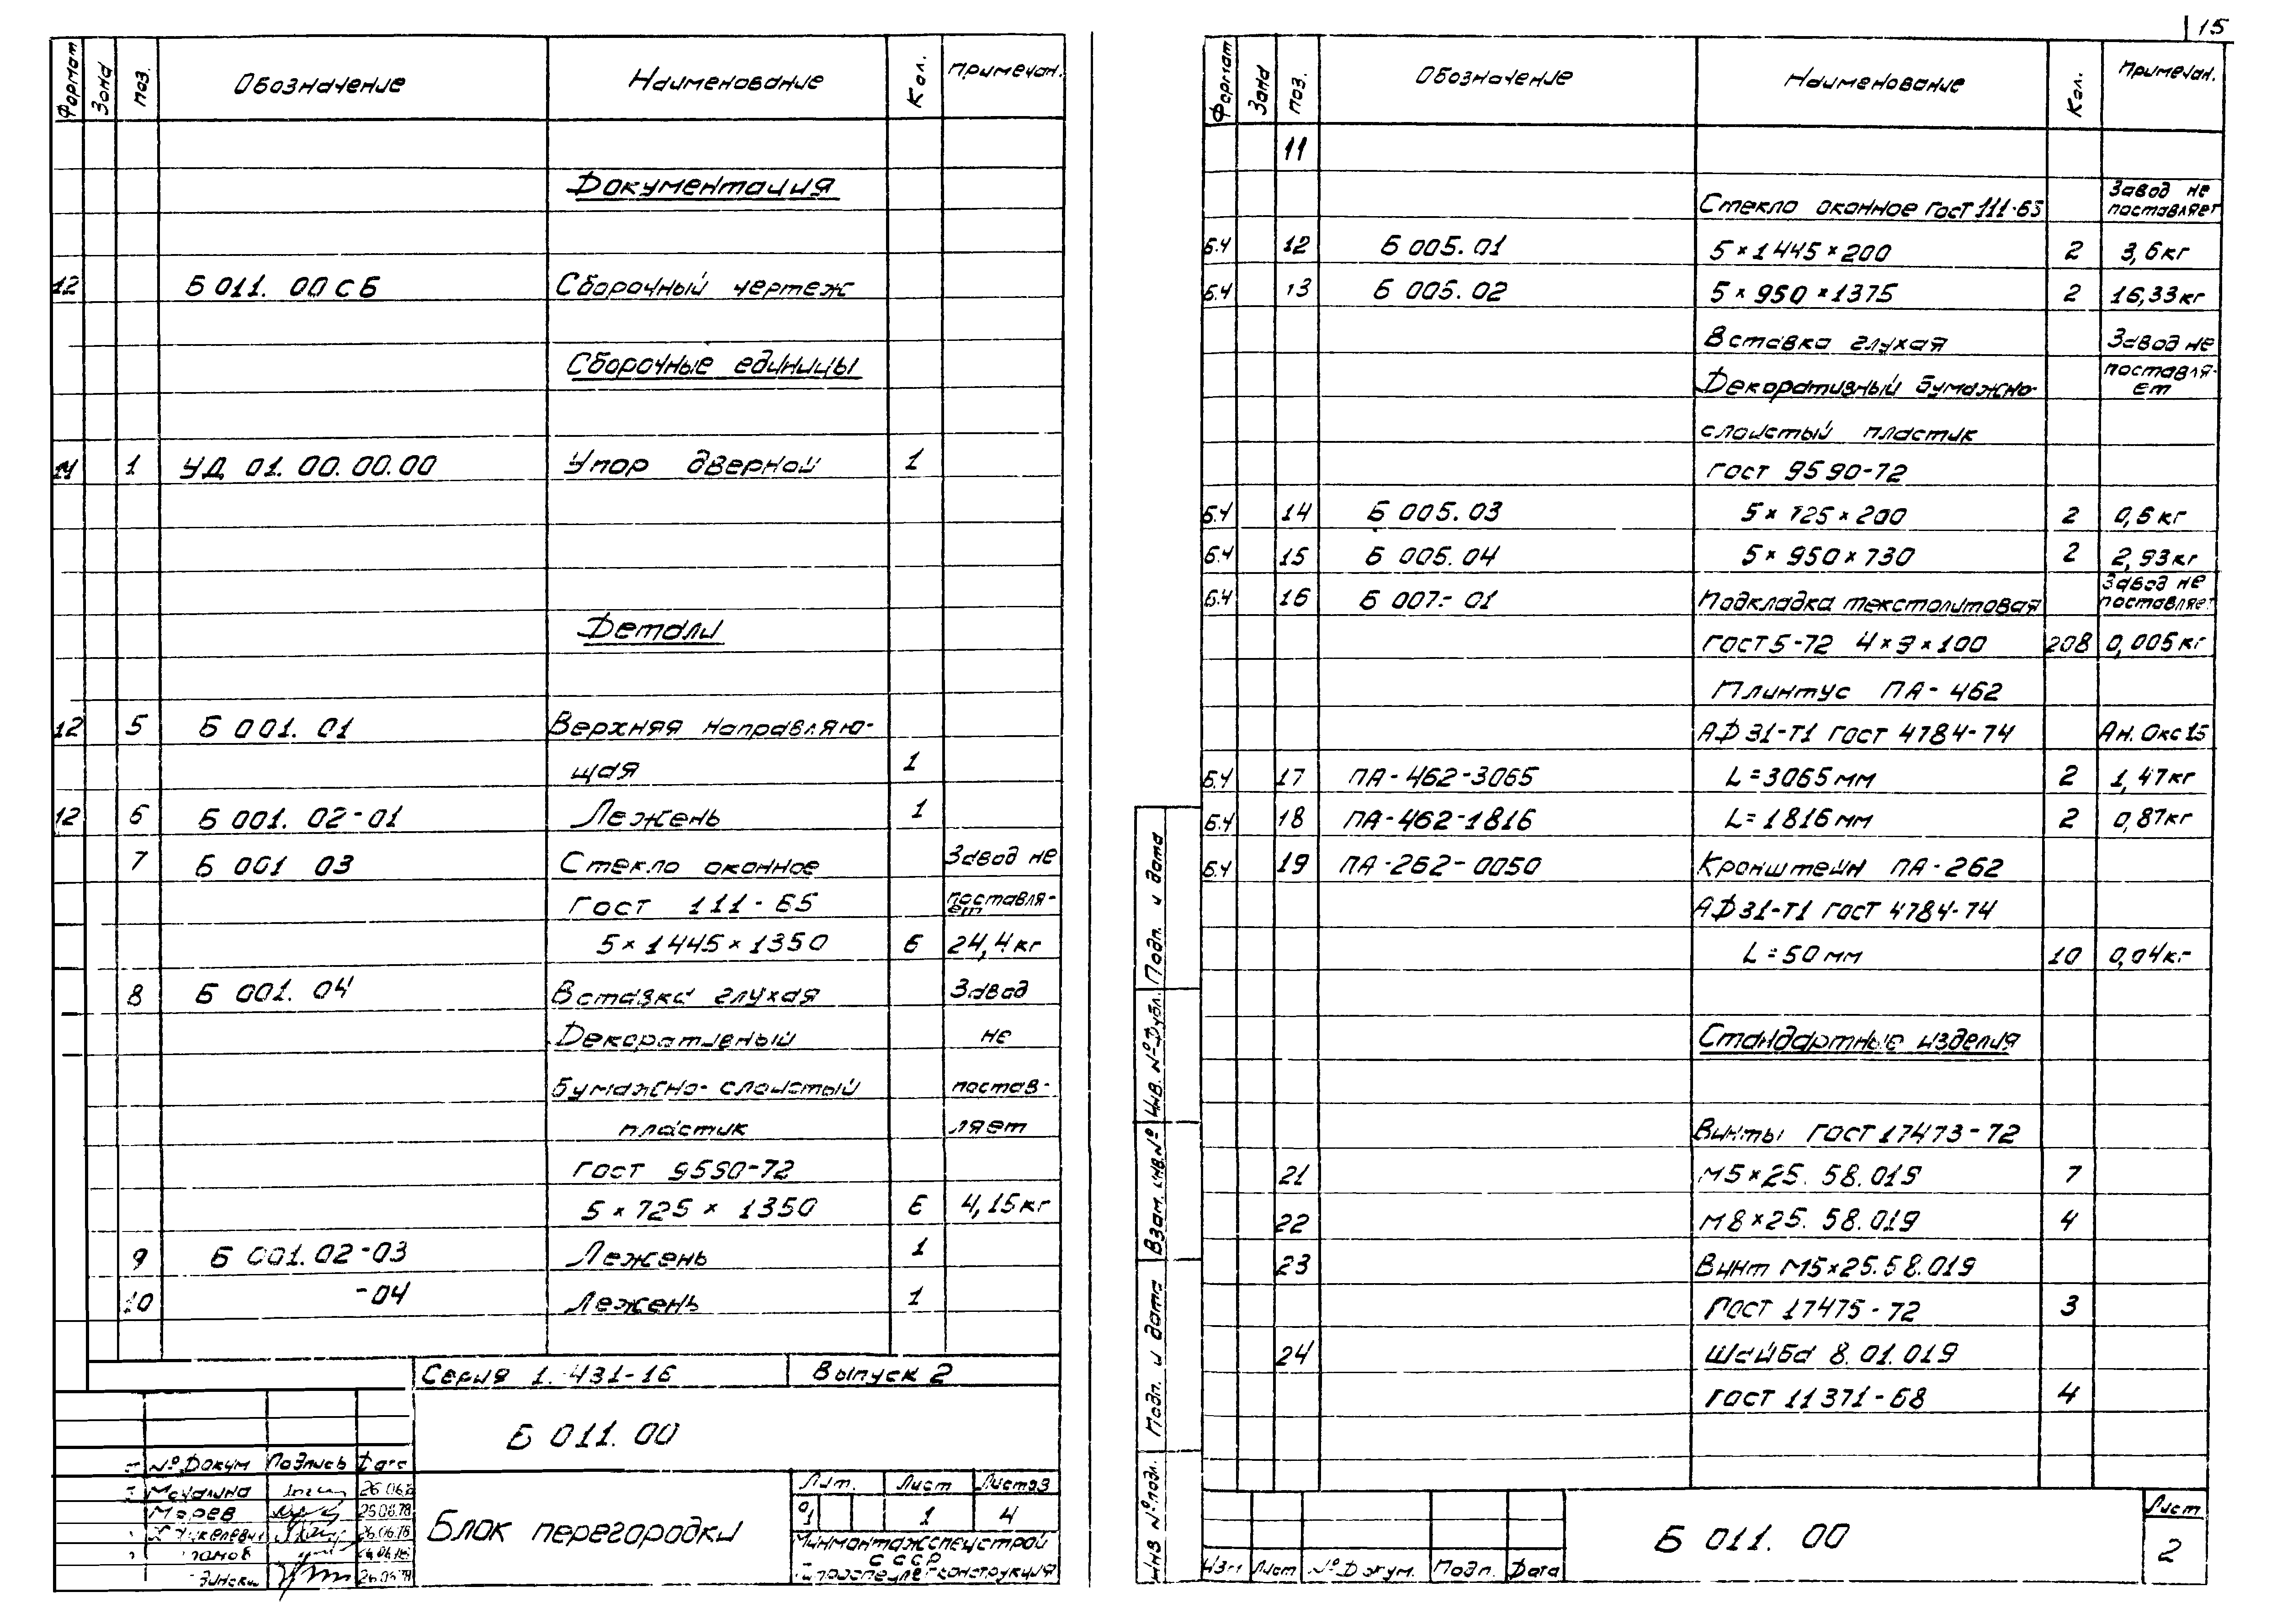 15
Формат Зона Поз. Обозначение Наименование Кол. Примечан.
Документация
12 Б 011. 00 СБ Сборочный чертеж
Сборочные единицы
14 1 УД 01. 00. 00. 00 Упор дверной 1
Детали
12 5 Б 001. 01 Верхняя направляю-
щая 1
12 6 Б 001. 02-01 Лежень 1
7 Б 001 03 Стекло оконное Завод не
ГОСТ 111-65 поставля-
ет
5×1445×1350 6 24,4кг
8 Б 001. 04 Вставка глухая Завод
Декоративный не
бумажно-слоистый постав-
пластик ляет
ГОСТ 9590-72
5×725×1350 6 4,15кг
9 Б 001. 02-03 Лежень 1
10 -04 Лежень 1
Серия 1. 431-16 Выпуск 2
Б 011. 00
№ Докум Подпись Дата
26.06.78
Мареев 26.06.78
26.06.78
26.06.78
26.06.78
Блок перегородки
Лит. Лист Листов
1 4
Минмонтажспецстрой
СССР
Гипроспецлегконструкция
Формат Зона Поз. Обозначение Наименование Кол. Примечан.
11
Стекло оконное ГОСТ 111-65 Завод не
поставляет
Б.Ч 12 Б 005. 01 5×1445×200 2 3,6кг
Б.Ч 13 Б 005. 02 5×950×1375 2 16,33кг
Вставка глухая Завод не
Декоративный бумажно- поставля-
ет
слоистый пластик
ГОСТ 9590-72
Б.Ч 14 Б 005. 03 5×725×200 2 0,6кг
Б.Ч 15 Б 005. 04 5×950×730 2 2,93кг
Б.Ч 16 Б 007-01 Подкладка текстолитовая Завод не
поставляет
ГОСТ 5-72 4×3×100 208 0,005кг
Плинтус ПА-462
АД31-Т1 ГОСТ 4784-74 Ан. Окс 15
Б.Ч 17 ПА-462-3065 L=3065мм 2 1,47кг
Б.Ч 18 ПА-462-1816 L=1816мм 2 0,87кг
Б.Ч 19 ПА-262-0050 Кронштейн ПА-262
АД31-Т1 ГОСТ 4784-74
L=50мм 10 0,04кг
Стандартные изделия
Винты ГОСТ 17473-72
21 М5×25. 58. 019 7
22 М8×25. 58. 019 4
23 Винт М5×25.58.019
ГОСТ 17475-72 3
24 Шайба 8.01.019
ГОСТ 11371-68 4
Инв № подл. Подп. и дата Взам. инв. № Инв. № дубл. Подп. и дата
Изм Лист № Докум. Подп. Дата
Б 011. 00
Лист
2